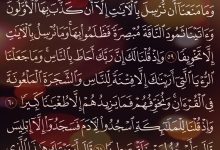 وَمَا مَنَعَنَا أَن نُّرْسِلَ بِالْآيَاتِ إِلَّا أَن كَذَّبَ بِهَا الْأَوَّلُونَ
وَآتَيْنَا ثَمُودَ النَّاقَةَ مُبْصِرَةً فَظَلَمُوا بِهَا وَمَا نُرْسِلُ بِالْآيَاتِ
إِلَّا تَخْوِيفًا ٥٩ وَإِذْ قُلْنَا لَكَ إِنَّ رَبَّكَ أَحَاطَ بِالنَّاسِ وَمَا جَعَلْنَا
الرُّؤْيَا الَّتِي أَرَيْنَاكَ إِلَّا فِتْنَةً لِّلنَّاسِ وَالشَّجَرَةَ الْمَلْعُونَةَ
فِي الْقُرْآنِ وَنُخَوِّفُهُمْ فَمَا يَزِيدُهُمْ إِلَّا طُغْيَانًا كَبِيرًا ٦٠
وَإِذْ قُلْنَا لِلْمَلَائِكَةِ اسْجُدُوا لِآدَمَ فَسَجَدُوا إِلَّا إِبْلِيسَ